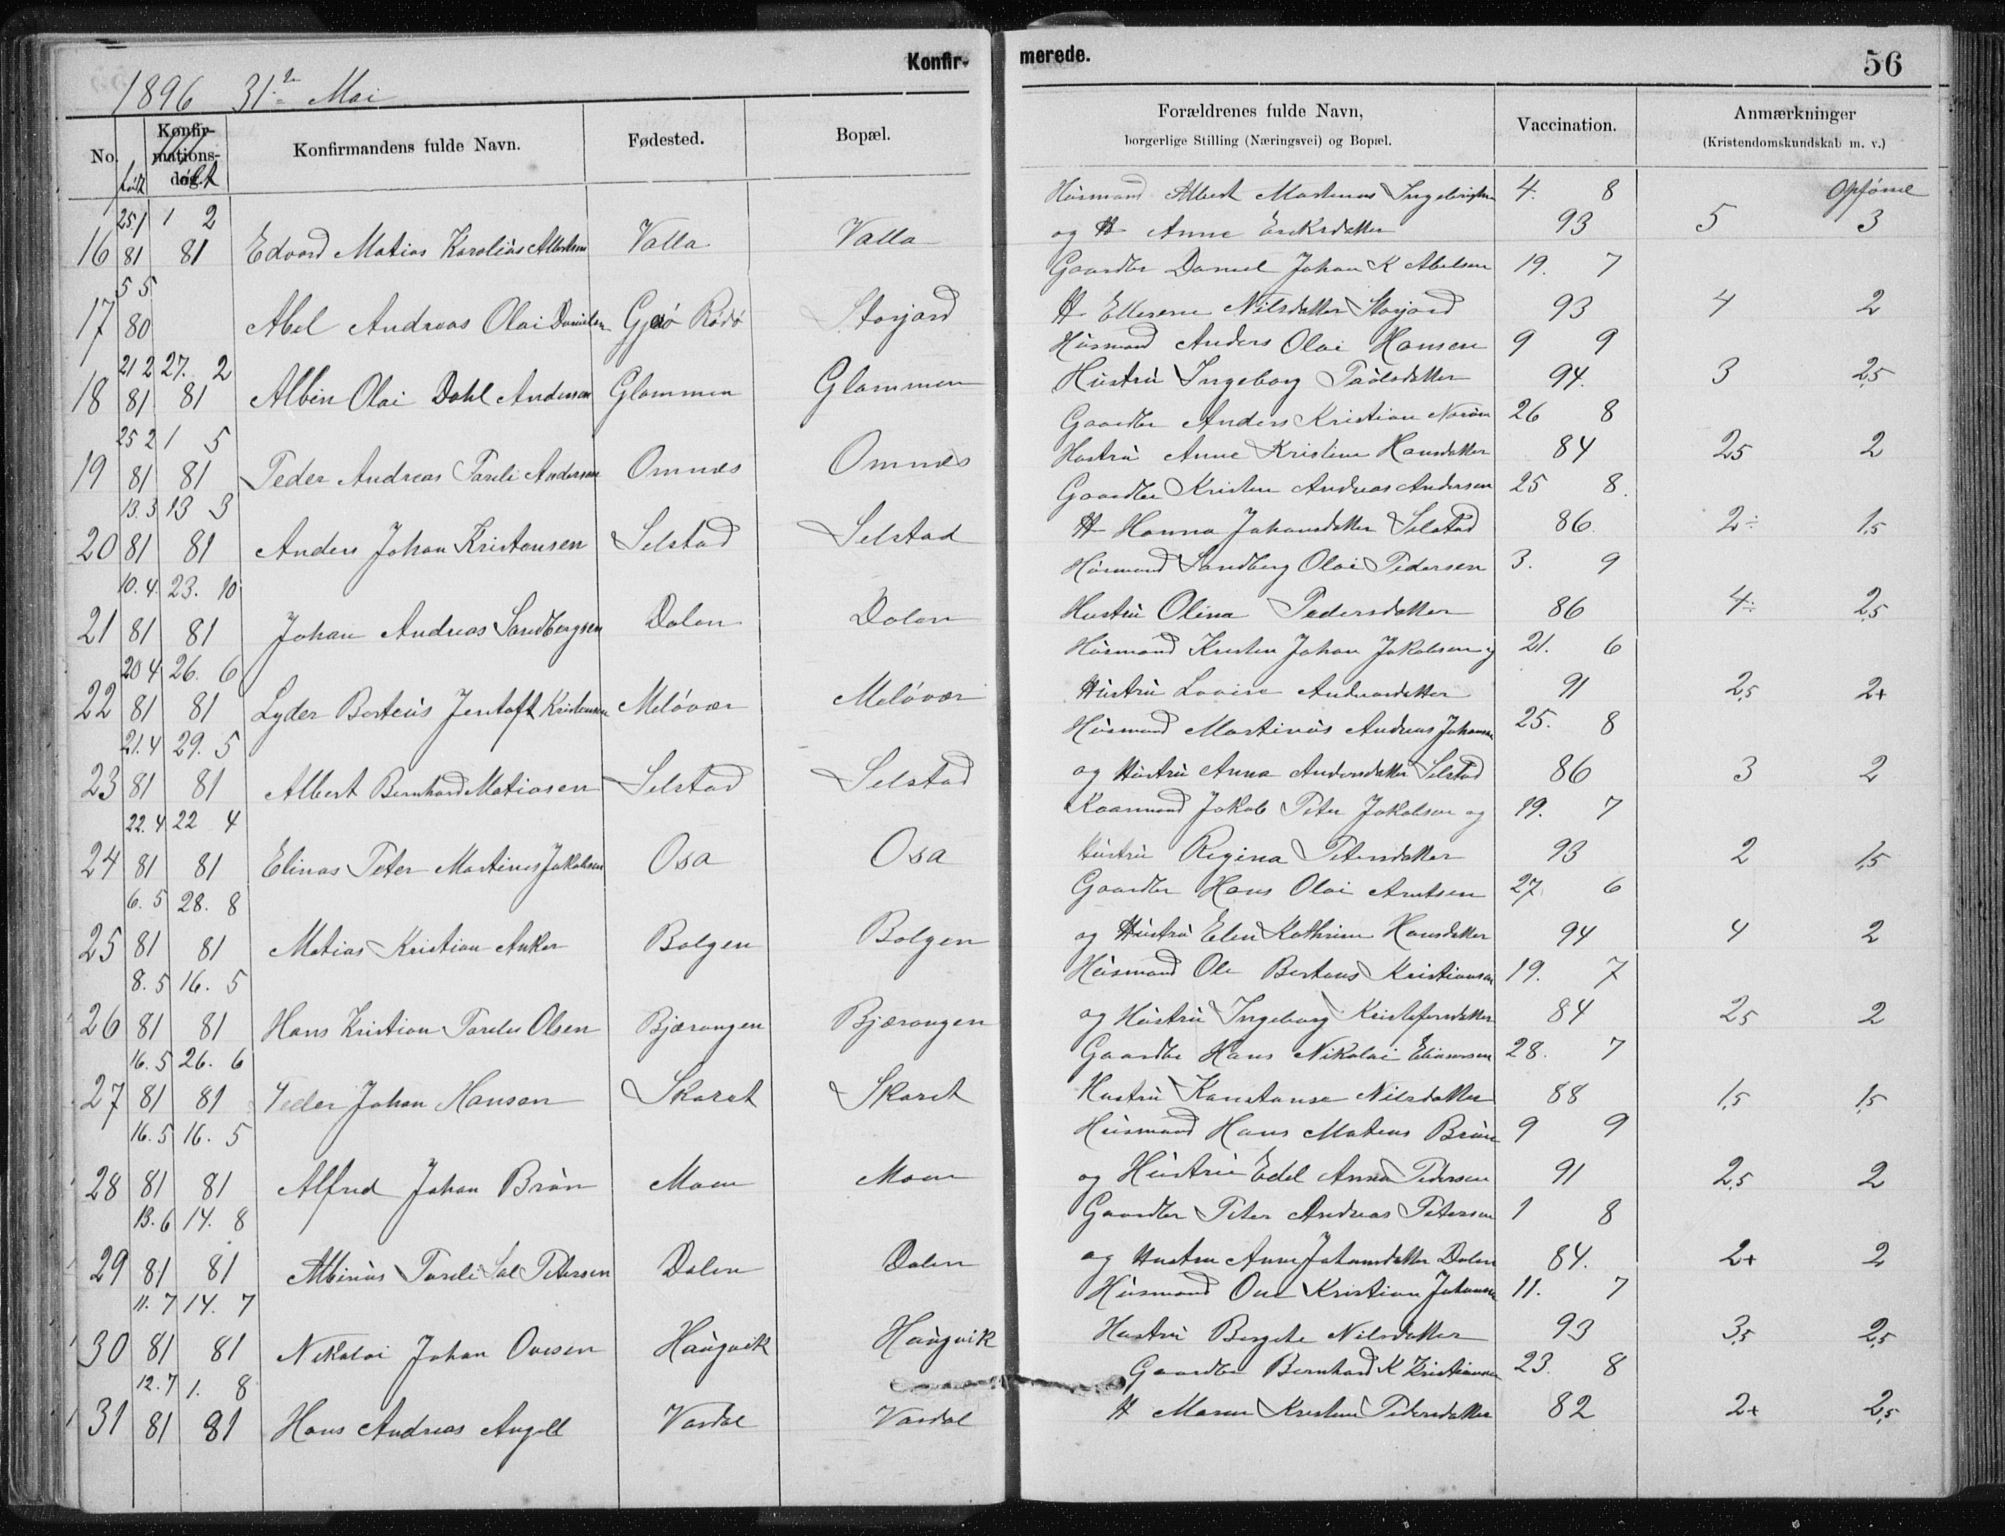 Konfir- merede. 56
1896 31te Mai
No. Konfirmations- dag. Konfirmandens fulde Navn. Fødested. Bopæl. Forældrenes fulde Navn, borgerlige Stilling (Næringsvei) og Bopæl. Vaccination. Anmærkninger (Kristendomskundskab m. v.)
født døbt
Húsmand Albert Martinus 4. 8 Opførsel
25/1 1 2 og H Anne 93 5 3
16 81 81 Edvard Matias Karoliùs Albertsen Valla Valla
Gaardbr Daniel Johan K Abelsen 19. 7
5 5 H Ellerene Nilsdatter Storjord 93 4 2
17 80 Abel Andreas Olai Danielsen Gjerø Rødø Storjord
Húsmand Anders Olai Hansen 9 9
21 2 27. 2 Hústrú Ingeborg Paùlsdatter 94. 3 2,5
18 81 81 Albin Olai Dahl Andersen Glommen Glommen
Gaardbr Anders Kristian 26 8
25 2 1 5 Hustrú Anne Kristine Hansdatter 84 2,5 2
19 81 81 Peder Andreas Pareli Andersen Omnes Omnes
Gaardbr Kristen Andreas Andersen 25 8.
13.3 13 3 H Hanna Johansdatter Selstad 86. 2÷ 1,5
20 81 81 Anders Johan Kristensen Selstad Selstad
Húsmand Sandberg Olai Pedersen 3. 9
10.4. 23. 10 Hustrú Olina Pedersdatter 86 4÷ 2,5
21 81 81 Johan Andreas Sandbergsen Dolen Dolen
Húsmand Kristen Johan Jakobsen og 21. 6
20 4 26. 6 Hústrú Lovise Andreasdatter 91 2,5 2+
22 81 81 Lyder Borteùs Jentoft Kristensen Meløvær Meløvær
Húsmand Martinùs Andreas Johansen 25. 8
21.4 29. 5 og Hústrú Anna Andersdatter Selstad 86 3 2
23 81 81 Albert Bernhard Matiasen Selstad Selstad
Kaarmand Jakob Peter Jakobsen og 19. 7
22.4 22 4 Hústrú Regina Petersdatter 93 2 1,5
24 81 81 Elinas Peter Martines Jakobsen Osa Osa
Gaardbr Hans Olai Arntsen 27. 6
6. 5 28. 8 og Hústrú Elen Kathrine Hansdatter 94 4 2
25 81 81 Matias Kristian Anker Bolgen Bolgen
Húsmand Ole Bertous Kristiansen 19. 7
8. 5 16. 5 og Hústrú Ingeborg Kristofersdatter 84 2,5 2
26 81 81 Hans Kristian Parelius Olsen Bjærangen Bjærangen
Gaardbr Hans Nikolai Eliasersen 28. 7
16. 5 26. 6 Hustrú Konstanse Nilsdatter 88 1,5 1,5
27 81 81 Peder Johan Hansen Skaret Skaret
Húsmand Hans Mateus Brùn 9 9
16. 5 16. 5 og Hústrú Edel Anna Pedersen 91 2,5 2
28 81 81 Alfred Johan Brùn Moen Moen
Gaardbr Peter Andreas Petersen 1 8
13. 6 14. 8 og Hustru Anne Johansdatter Dolen 84. 2+ 2
29 81 81 Albinùs Pareli Sal Petersen Dolen Dolen
Húsmand Ove Kristian Johansen 11. 7
11. 7 14. 7 Hustrú Bergete Nilsdatter 93 3,5 2,5
30 81 81 Nikolai Johan Ovesen Haùgvik Haùgvik
Gaardbr Bernhard K Kristiansen 23. 8
12. 7 1. 8 H Maren Kristine Pedersdatter 82 2+ 2,5
31 81 81 Hans Andreas Angell Vardal Vardal